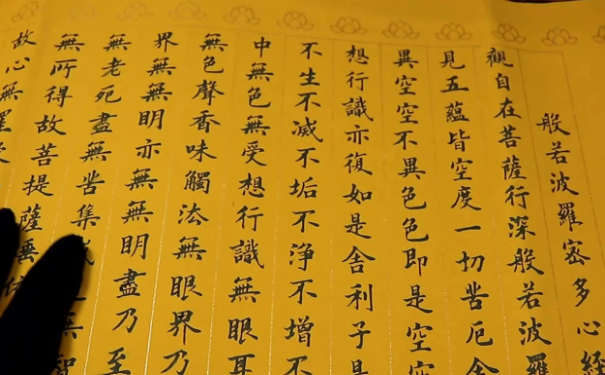 般若波羅蜜多心經
觀自在菩薩行深般若波羅
見五蘊皆空度一切苦厄舍
異空空不異色色即是空空
想行識亦復如是舍利子是
不生不滅不垢不淨不增不
中無色無受想行識無眼耳
無色聲香味觸法無眼界乃
界無無明亦無無明盡乃至
無老死盡無苦集滅 無智
無所得故菩提薩埵依
故心無罣